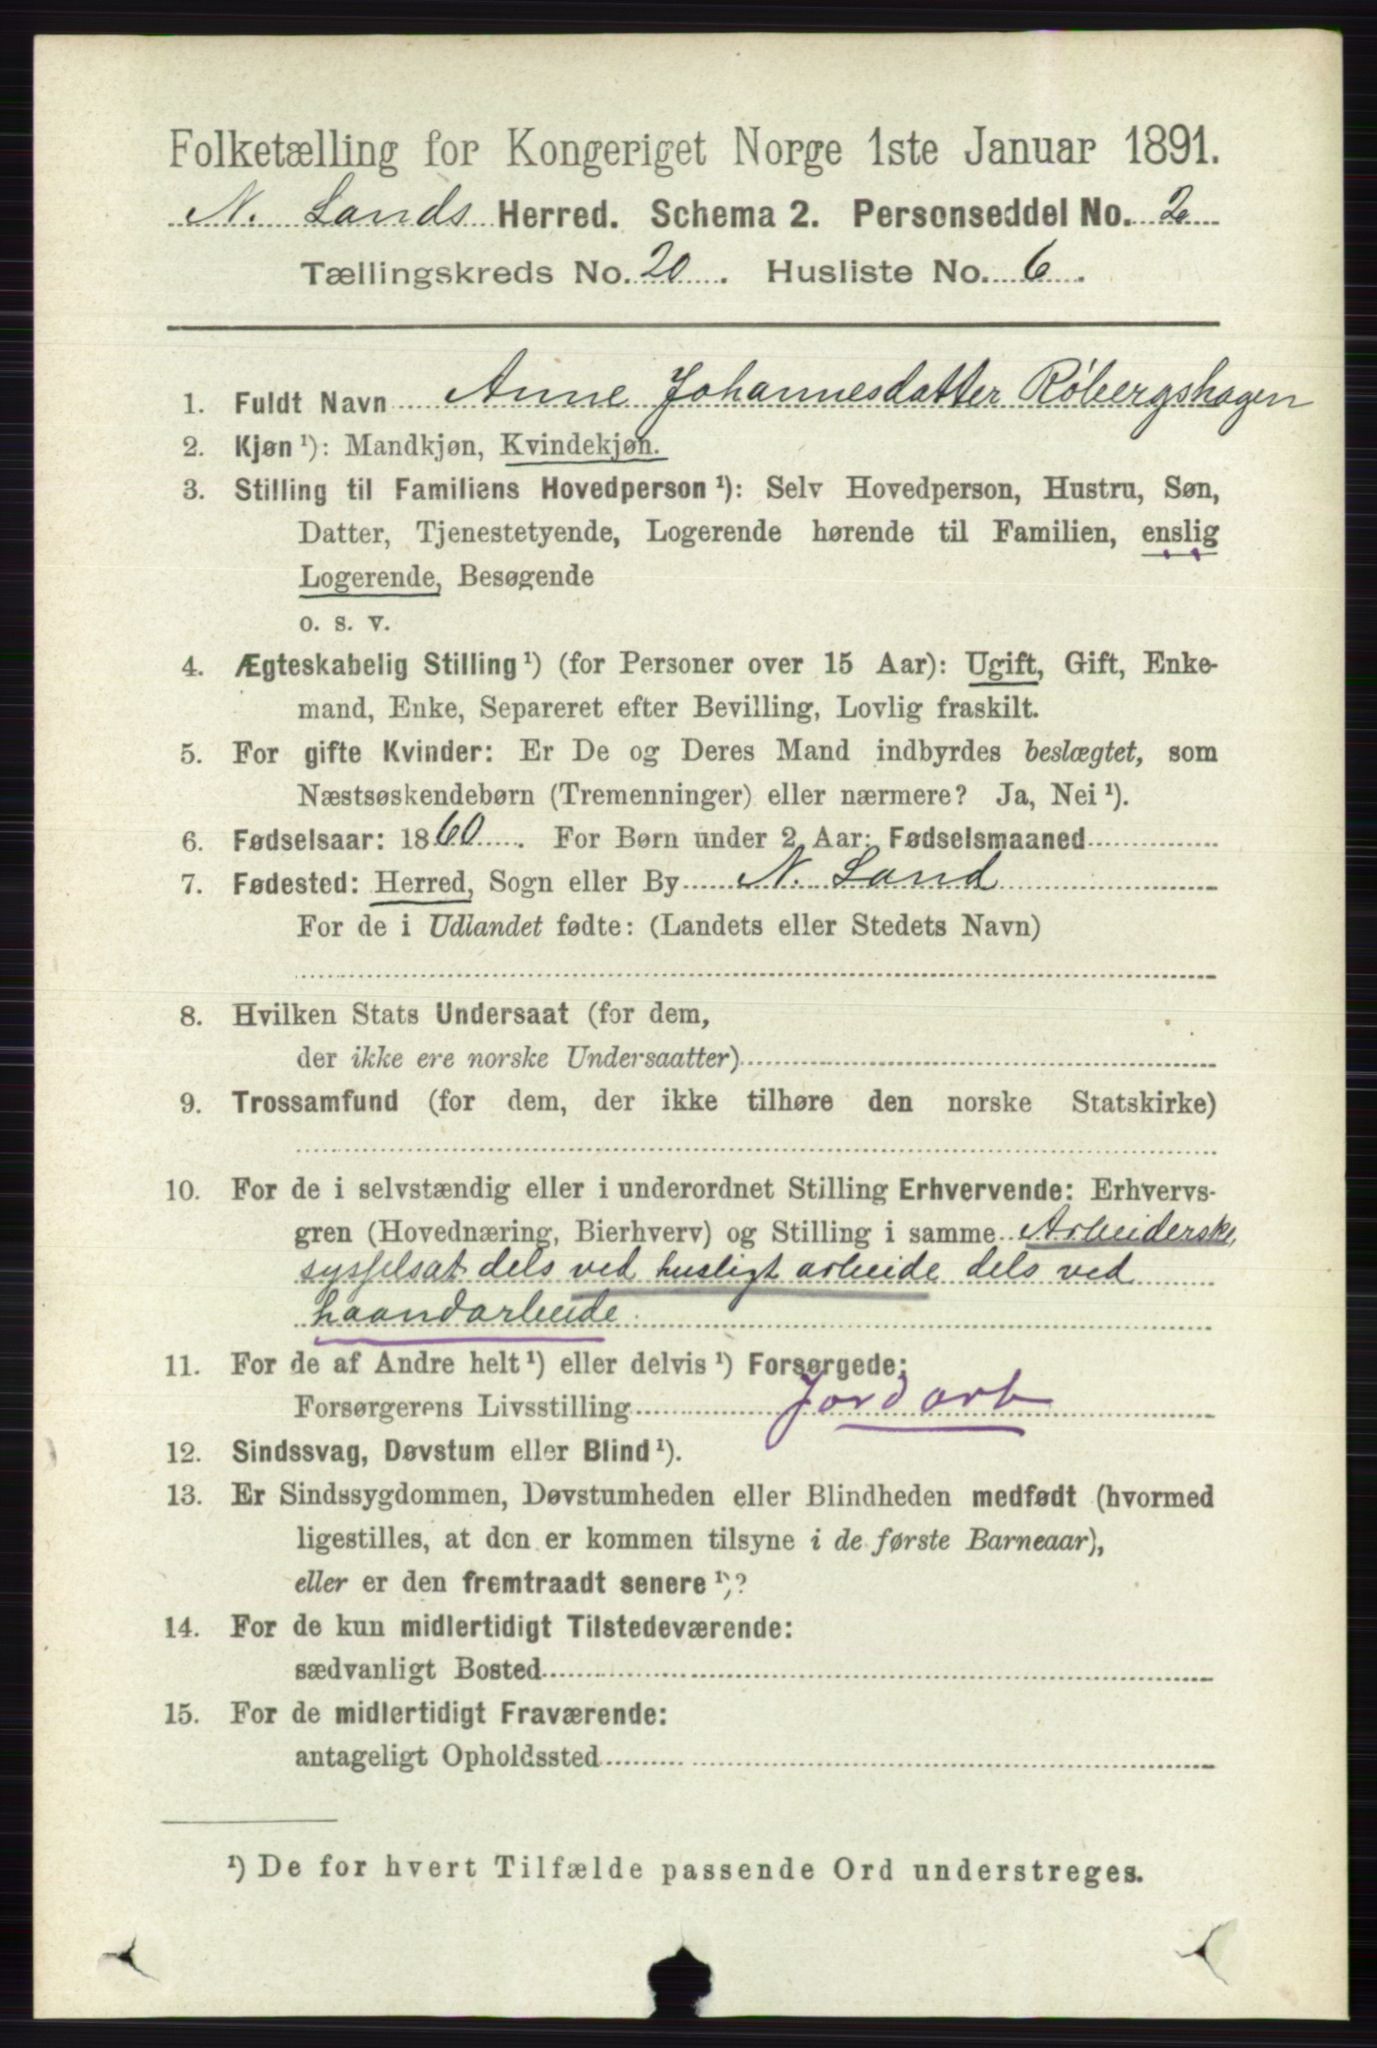 Folketælling for Kongeriget Norge 1ste Januar 1891.
N. Lands Herred. Schema 2. Personseddel No. 2
Tællingskreds No. 20. Husliste No. 6.
1. Fuldt Navn Anne Johannesdatter Røbergshagen
2. Kjøn¹): Mandkjøn, Kvindekjøn.
3. Stilling til Familiens Hovedperson¹): Selv Hovedperson, Hustru, Søn,
Datter, Tjenestetyende, Logerende hørende til Familien, enslig
Logerende, Besøgende
o. s. v.
4. Ægteskabelig Stilling¹) (for Personer over 15 Aar): Ugift, Gift, Enke-
mand, Enke, Separeret efter Bevilling, Lovlig fraskilt.
5. For gifte Kvinder: Er De og Deres Mand indbyrdes beslægtet, som
Næstsøskendebørn (Tremenninger) eller nærmere? Ja, Nei¹).
6. Fødselsaar: 1860. For Børn under 2 Aar: Fødselsmaaned
7. Fødested: Herred, Sogn eller By N. Land
For de i Udlandet fødte: (Landets eller Stedets Navn)
8. Hvilken Stats Undersaat (for dem,
der ikke ere norske Undersaatter)
9. Trossamfund (for dem, der ikke tilhøre den norske Statskirke)
10. For de i selvstændig eller i underordnet Stilling Erhvervende: Erhvervs-
gren (Hovednæring, Bierhverv) og Stilling i samme Arbeiderske,
sysselsat dels ved husligt arbeide dels ved
haandarbeide
11. For de af Andre helt¹) eller delvis¹) Forsørgede:
Forsørgerens Livsstilling Jordarb
12. Sindssvag, Døvstum eller Blind¹).
13. Er Sindssygdommen, Døvstumheden eller Blindheden medfødt (hvormed
ligestilles, at den er kommen tilsyne i de første Barneaar),
eller er den fremtraadt senere¹)?
14. For de kun midlertidigt Tilstedeværende:
sædvanligt Bosted
15. For de midlertidigt Fraværende:
antageligt Opholdssted
¹) De for hvert Tilfælde passende Ord understreges.